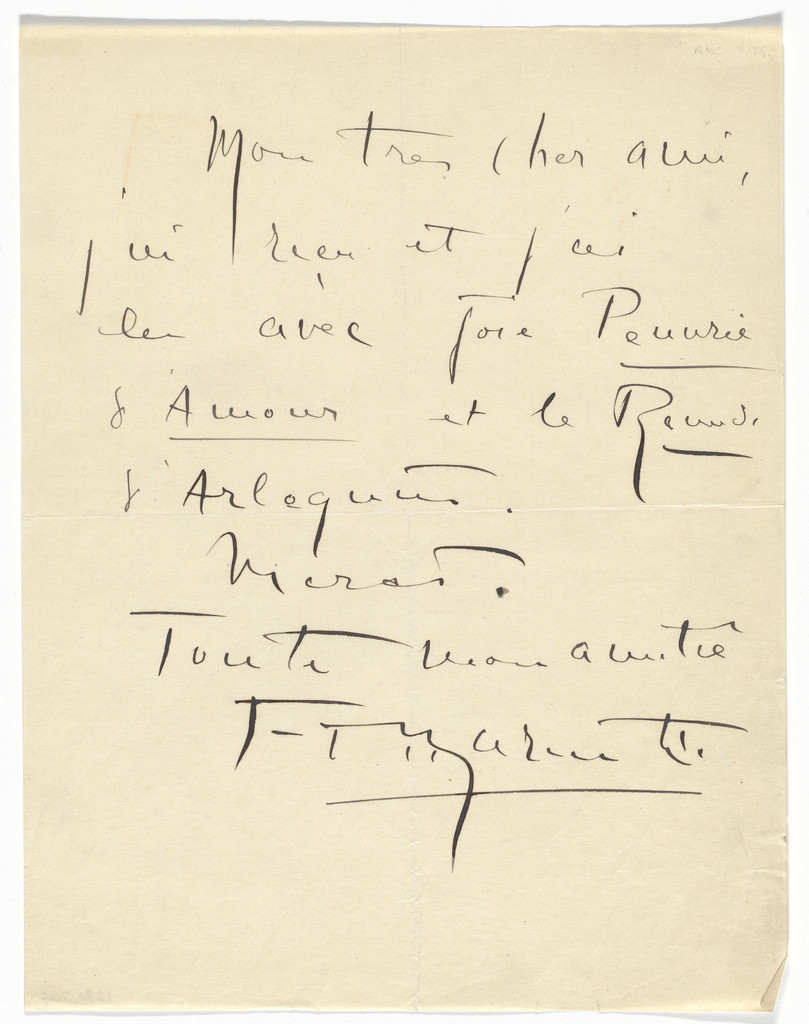 Mon tres cher ami,
j'ai reçu et j'ai
lu avec joie Penurie
d'Amour et le
d'Arlequins.
Merci.
Toute mon amitié
F-T Marinetti